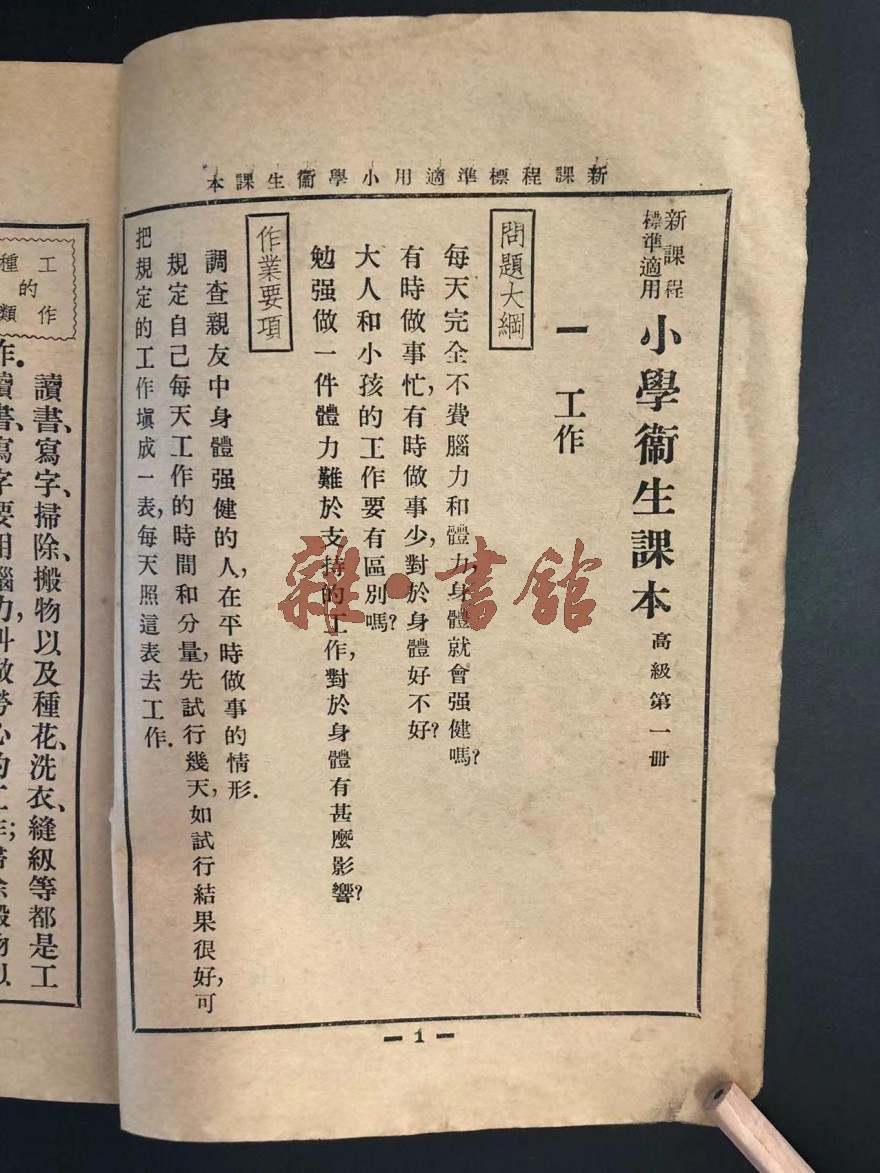 新課程標準適用小學衞生課本
新課程
標準適用
小學衞生課本
高級第一冊
一 工作
問題大綱
每天完全不費腦力和體力,身體就會强健嗎?
有時做事忙,有時做事少,對於身體好不好?
大人和小孩的工作要有區別嗎?
勉强做一件體力難於支持的工作,對於身體有甚麼影響?
作業要項
調查親友中身體强健的人,在平時做事的情形.
規定自己每天工作的時間和分量,先試行幾天,如試行結果很好,可
把規定的工作塡成一表,每天照這表去工作.
1
工作
的
種類
讀書、寫字、掃除、搬物以及種花、洗衣、縫級等都是工
作.
雜·書館